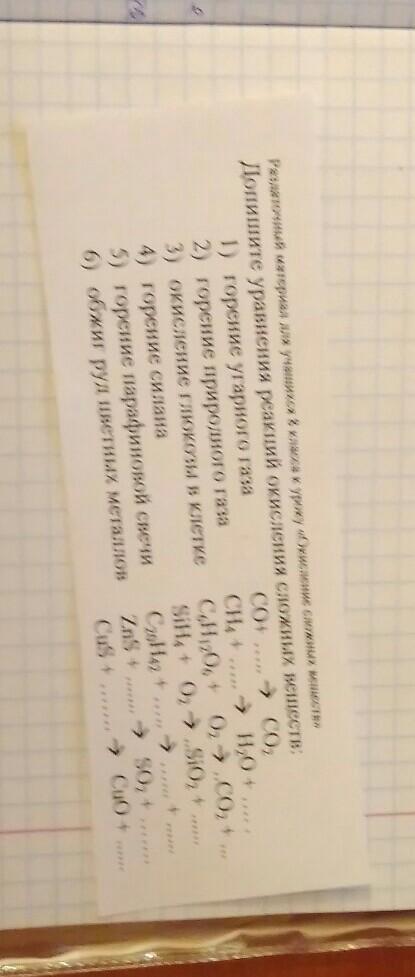 Раздаточный материал для учащихся 8 класса к уроку «Окисление сложных веществ»
Допишите уравнения реакций окисления сложных веществ:
1) горение угарного газа CO+ ….. → CO₂
2) горение природного газа CH₄ + …… → H₂O + …..
3) окисление глюкозы в клетке C₆H₁₂O₆ + O₂ → ..CO₂ + ...
4) горение силана SiH₄ + O₂ → ..SiO₂ + ......
5) горение парафиновой свечи C₂₀H₄₂ + ...... → ....... + ......
6) обжиг руд цветных металлов ZnS + ........ → SO₂ + ........
CuS + ......... → CuO + ......